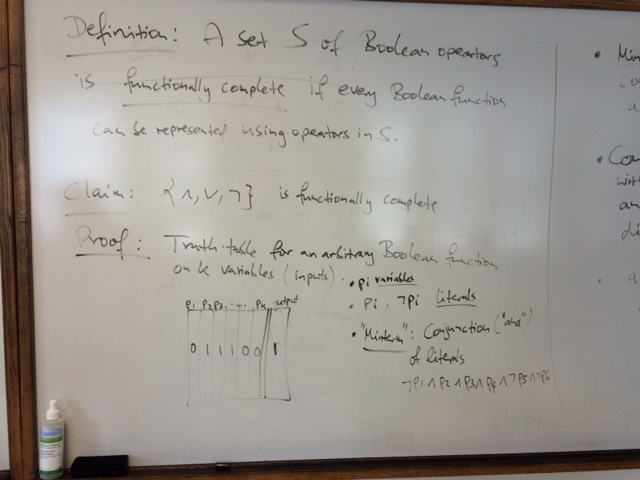 Definition: A set S of Boolean operators
is functionally complete if every Boolean function
can be represented using operators in S.
Claim: {∧, ∨, ¬} is functionally complete
Proof: Truth-table for an arbitrary Boolean function
on k variables (inputs)
• pi variables
• pi, ¬pi literals
• "Minterm": Conjunction ("and")
of literals
¬p1 ∧ p2 ∧ p3 ∧ p4 ∧ ¬p5 ∧ ¬p6
p1 p2 p3 .... pk output
0 1 1 1 0 0 1
• Min
co
a
• Con
with
an
di
• a